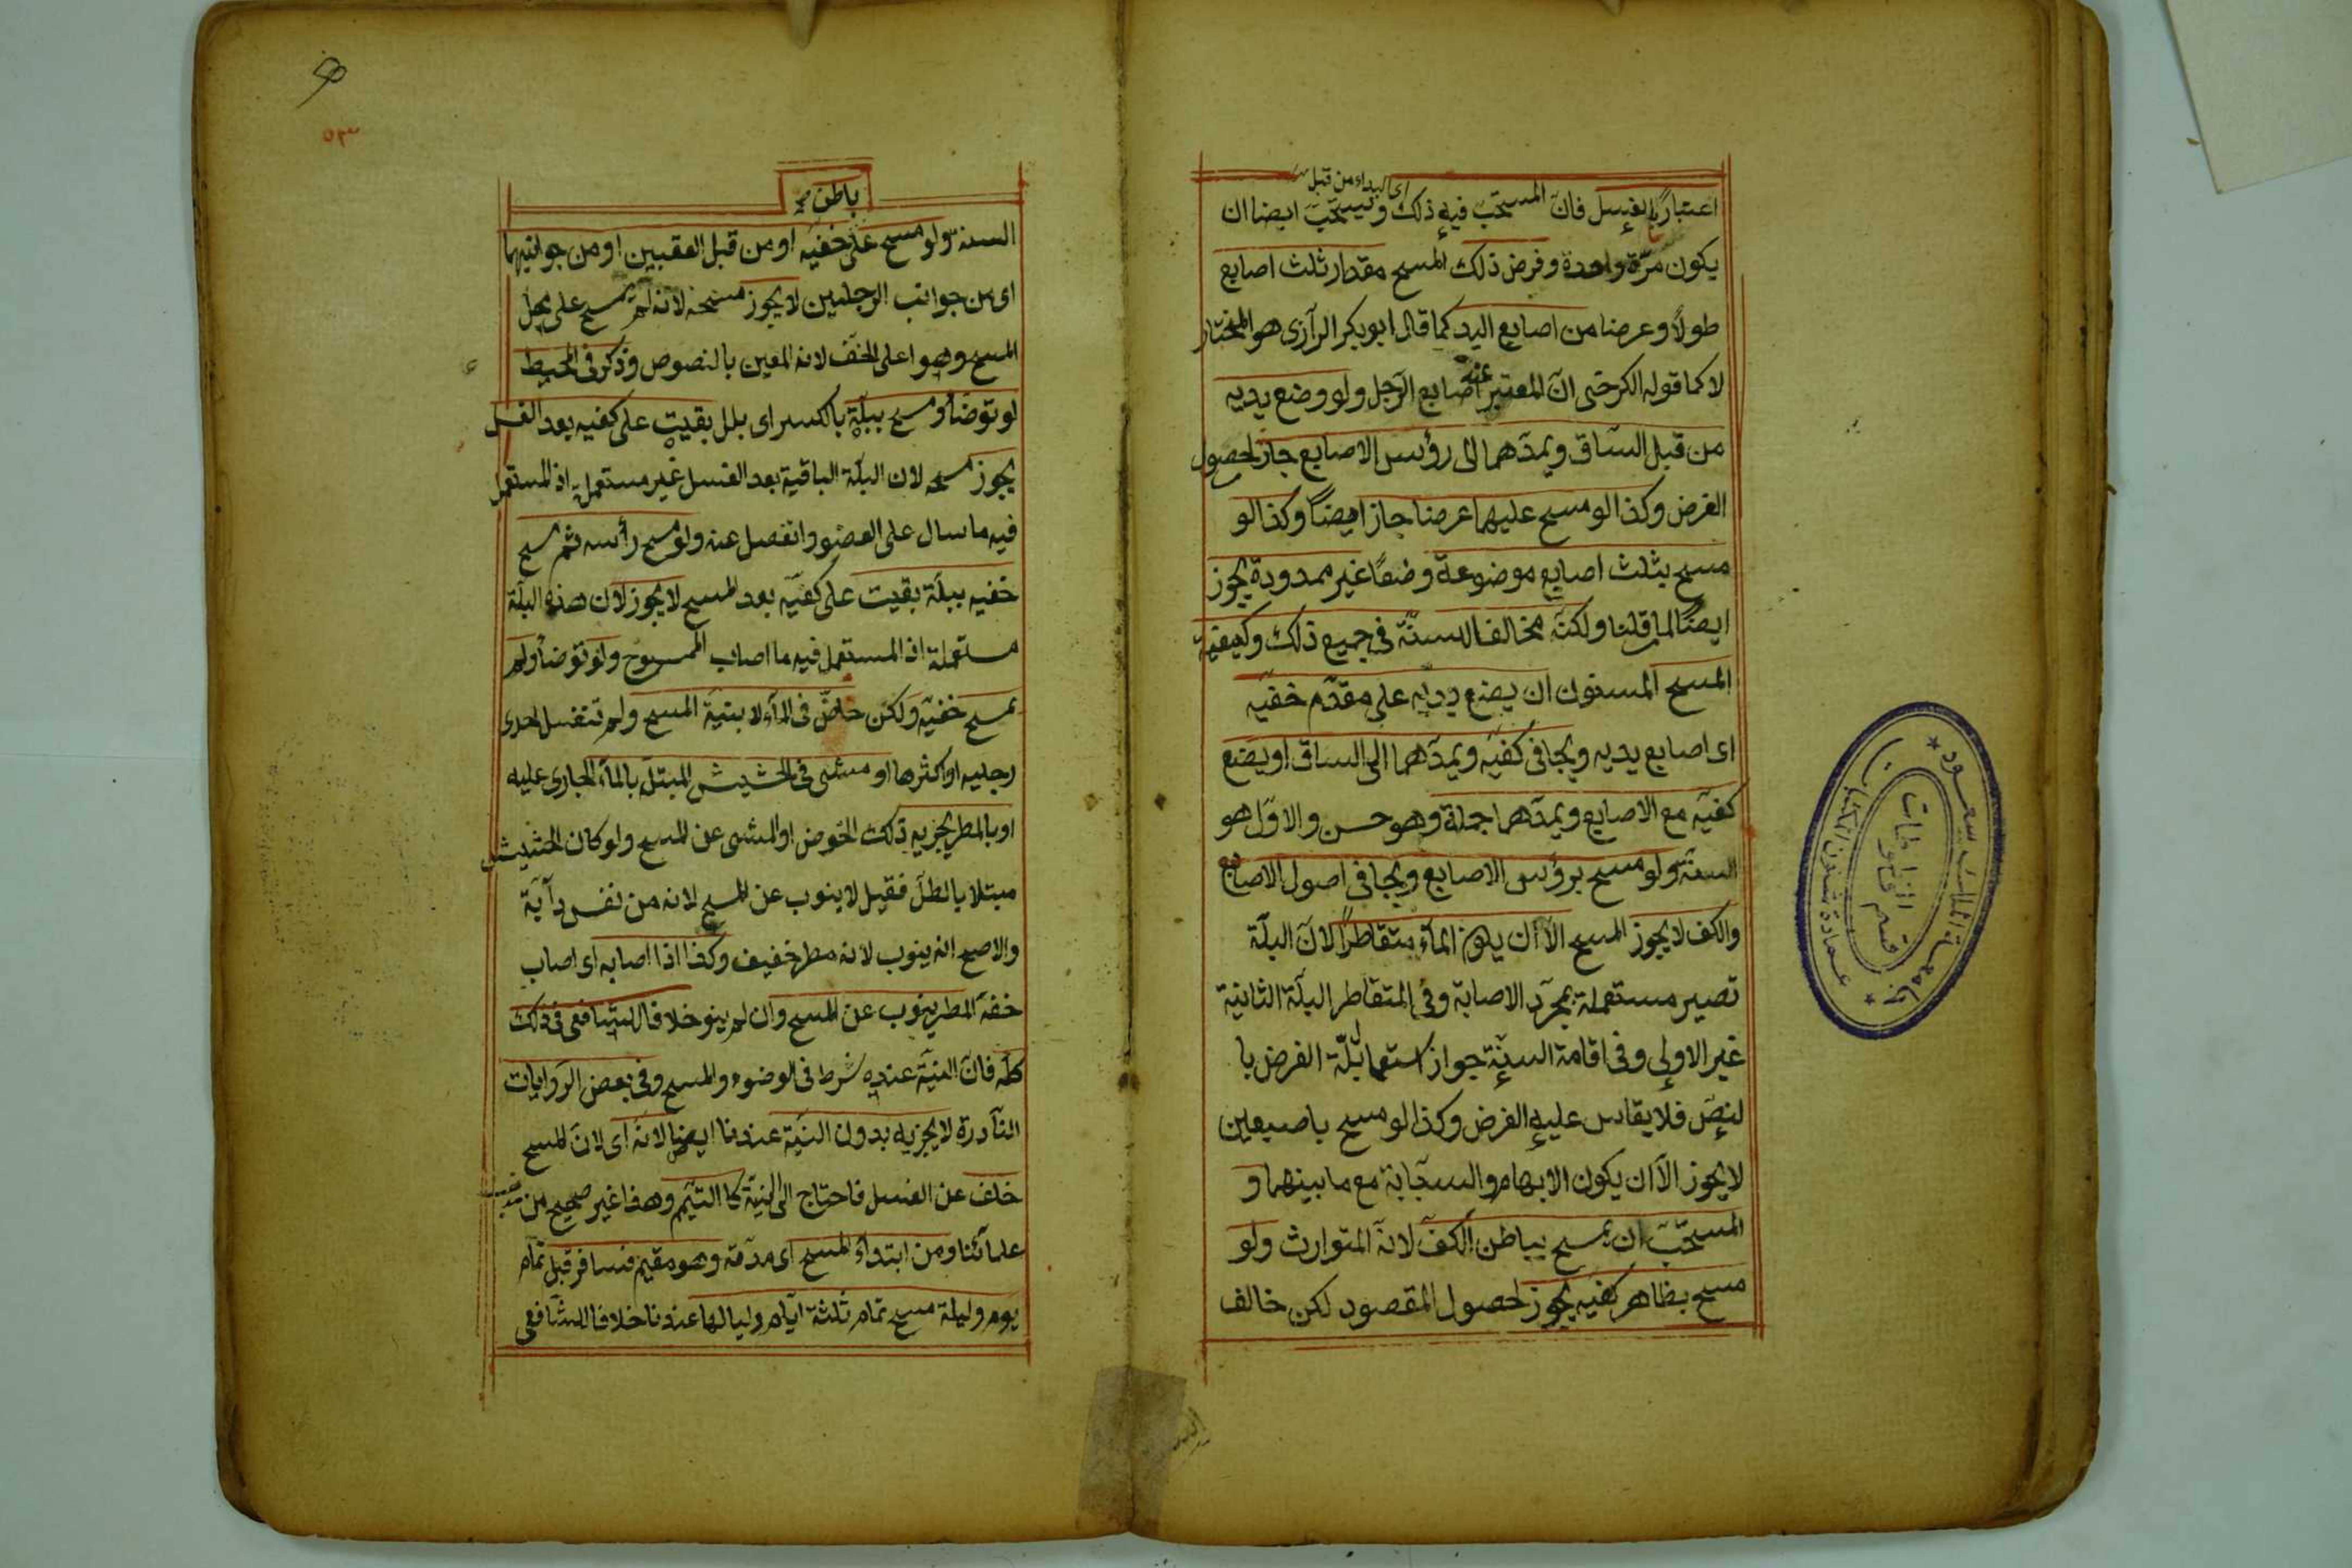 اى البداء من قبل
اعتبارًا بالغسل فانّ المستحبّ فيه ذلك ويستحبّ ايضا ان
يكون مرّة واحدة وفرض ذلك المسح مقدار ثلث اصابع
طولًا وعرضا من اصابع اليد كما قال ابو بكر الرآزى هو المختار
لا كما قوله الكرخى انّ المعتبر عنده اصابع الرّجل ولو وضع يديه
من قبل السّاق ويمدّهما الى رؤس الاصابع جاز لحصول
الفرض وكذا لو مسح عليهما عرضا جاز ايضًا وكذا لو
مسح بثلث اصابع موضوعة وضعًا غير ممدودة يجوز
ايضًا لما قلنا ولكنّه مخالف السنّة فى جميع ذلك وكيفية
المسح المسنون ان يضع يديه على مقدّم خفيّه
اى اصابع يديه ويجافى كفيّه ويمدّهما الى الساق او يضع
كفيّه مع الاصابع ويمدّهما جملة وهو حسن والاوّل هو
السنّة ولو مسح برؤس الاصابع ويجافى اصول الاصابع
والكف لا يجوز المسح الّا ان يكون المآء متقاطرًا لانّ البلّة
تصير مستعملة بمجرّد الاصابة وفى المتقاطر البلّة الثانية
غير الاولى وفى اقامة السنّة جواز استعما بلّة الفرض با
لنصّ فلا يقاس عليه الفرض وكذا لو مسح باصبعين
لا يجوز الّا ان يكون الابهام والسبّابة مع ما بينهما و
المستحّب ان يمسح بباطن الكفّ لانّه المتوارث ولو
مسح بظاهر كفيه يجوز لحصول المقصود لكن خالف
جامعة الملك سعود
عمادة شئون المكتبات
قسم المخطوطات
٥٣
باطن
السنة ولو مسح على خفيه او من قبل العقبين او من جوانبهما
اى من جوانب الرجلين لا يجوز مسحه لانه لم يمسح على محل
المسح وهو اعلى الخفّ لانه المعين بالنصوص وذكر فى المحيط
لو توضأ ومسح ببلّة بالكسر اى بلل بقيت على كفيه بعد الغسل
يجوز مسحه لان البلّة الباقية بعد الغسل غير مستعملة اذ المستعمل
فيه ما سال على العضو وانفصل عنه ولو مسح رأسه ثم مسح
خفيه ببلّة بقيت على كفيّه بعد المسح لا يجوز لان هذه البلّة
مستعملة اذ المستعمل فيه ما اصاب الممسوح ولو توضأ ولم
يمسح خفيّه ولكن خاضّ فى المآء لا بنيّة المسح ولم تنغسل احدى
رجليه او اكثرها او مشى فى الحشيش المبتلّ بالمآء الجارى عليه
او بالمطر يجزيه ذلك الخوض او المشى عن المسح ولو كان الحشيش
مبتلا بالطلّ فقيل لا ينوب عن المسح لانه من نفس دآبة
والاصح انه ينوب لانه مطر خفيف وكذا اذا اصابه اى اصاب
خفه المطر ينوب عن المسح وان لم ينو خلافا للشافعى فى ذلك
كلّه فانّ النيّة عنده شرط فى الوضوء والمسح وفى بعض الرّوايات
النآدرة لا يجزيه بدون النيّة عندنا ايضا لانّه اى لانّ المسح
خلف عن الغسل فاحتاج الى النيّة كا التيمّم وهذا غير صحيح من مذهب
علمآئنا ومن ابتدأ المسح اى مدّته وهو مقيم فسافر قبل تمام
يوم وليلة مسح تمام ثلثة ايّام ولياليها عندنا خلافا للشّافعى